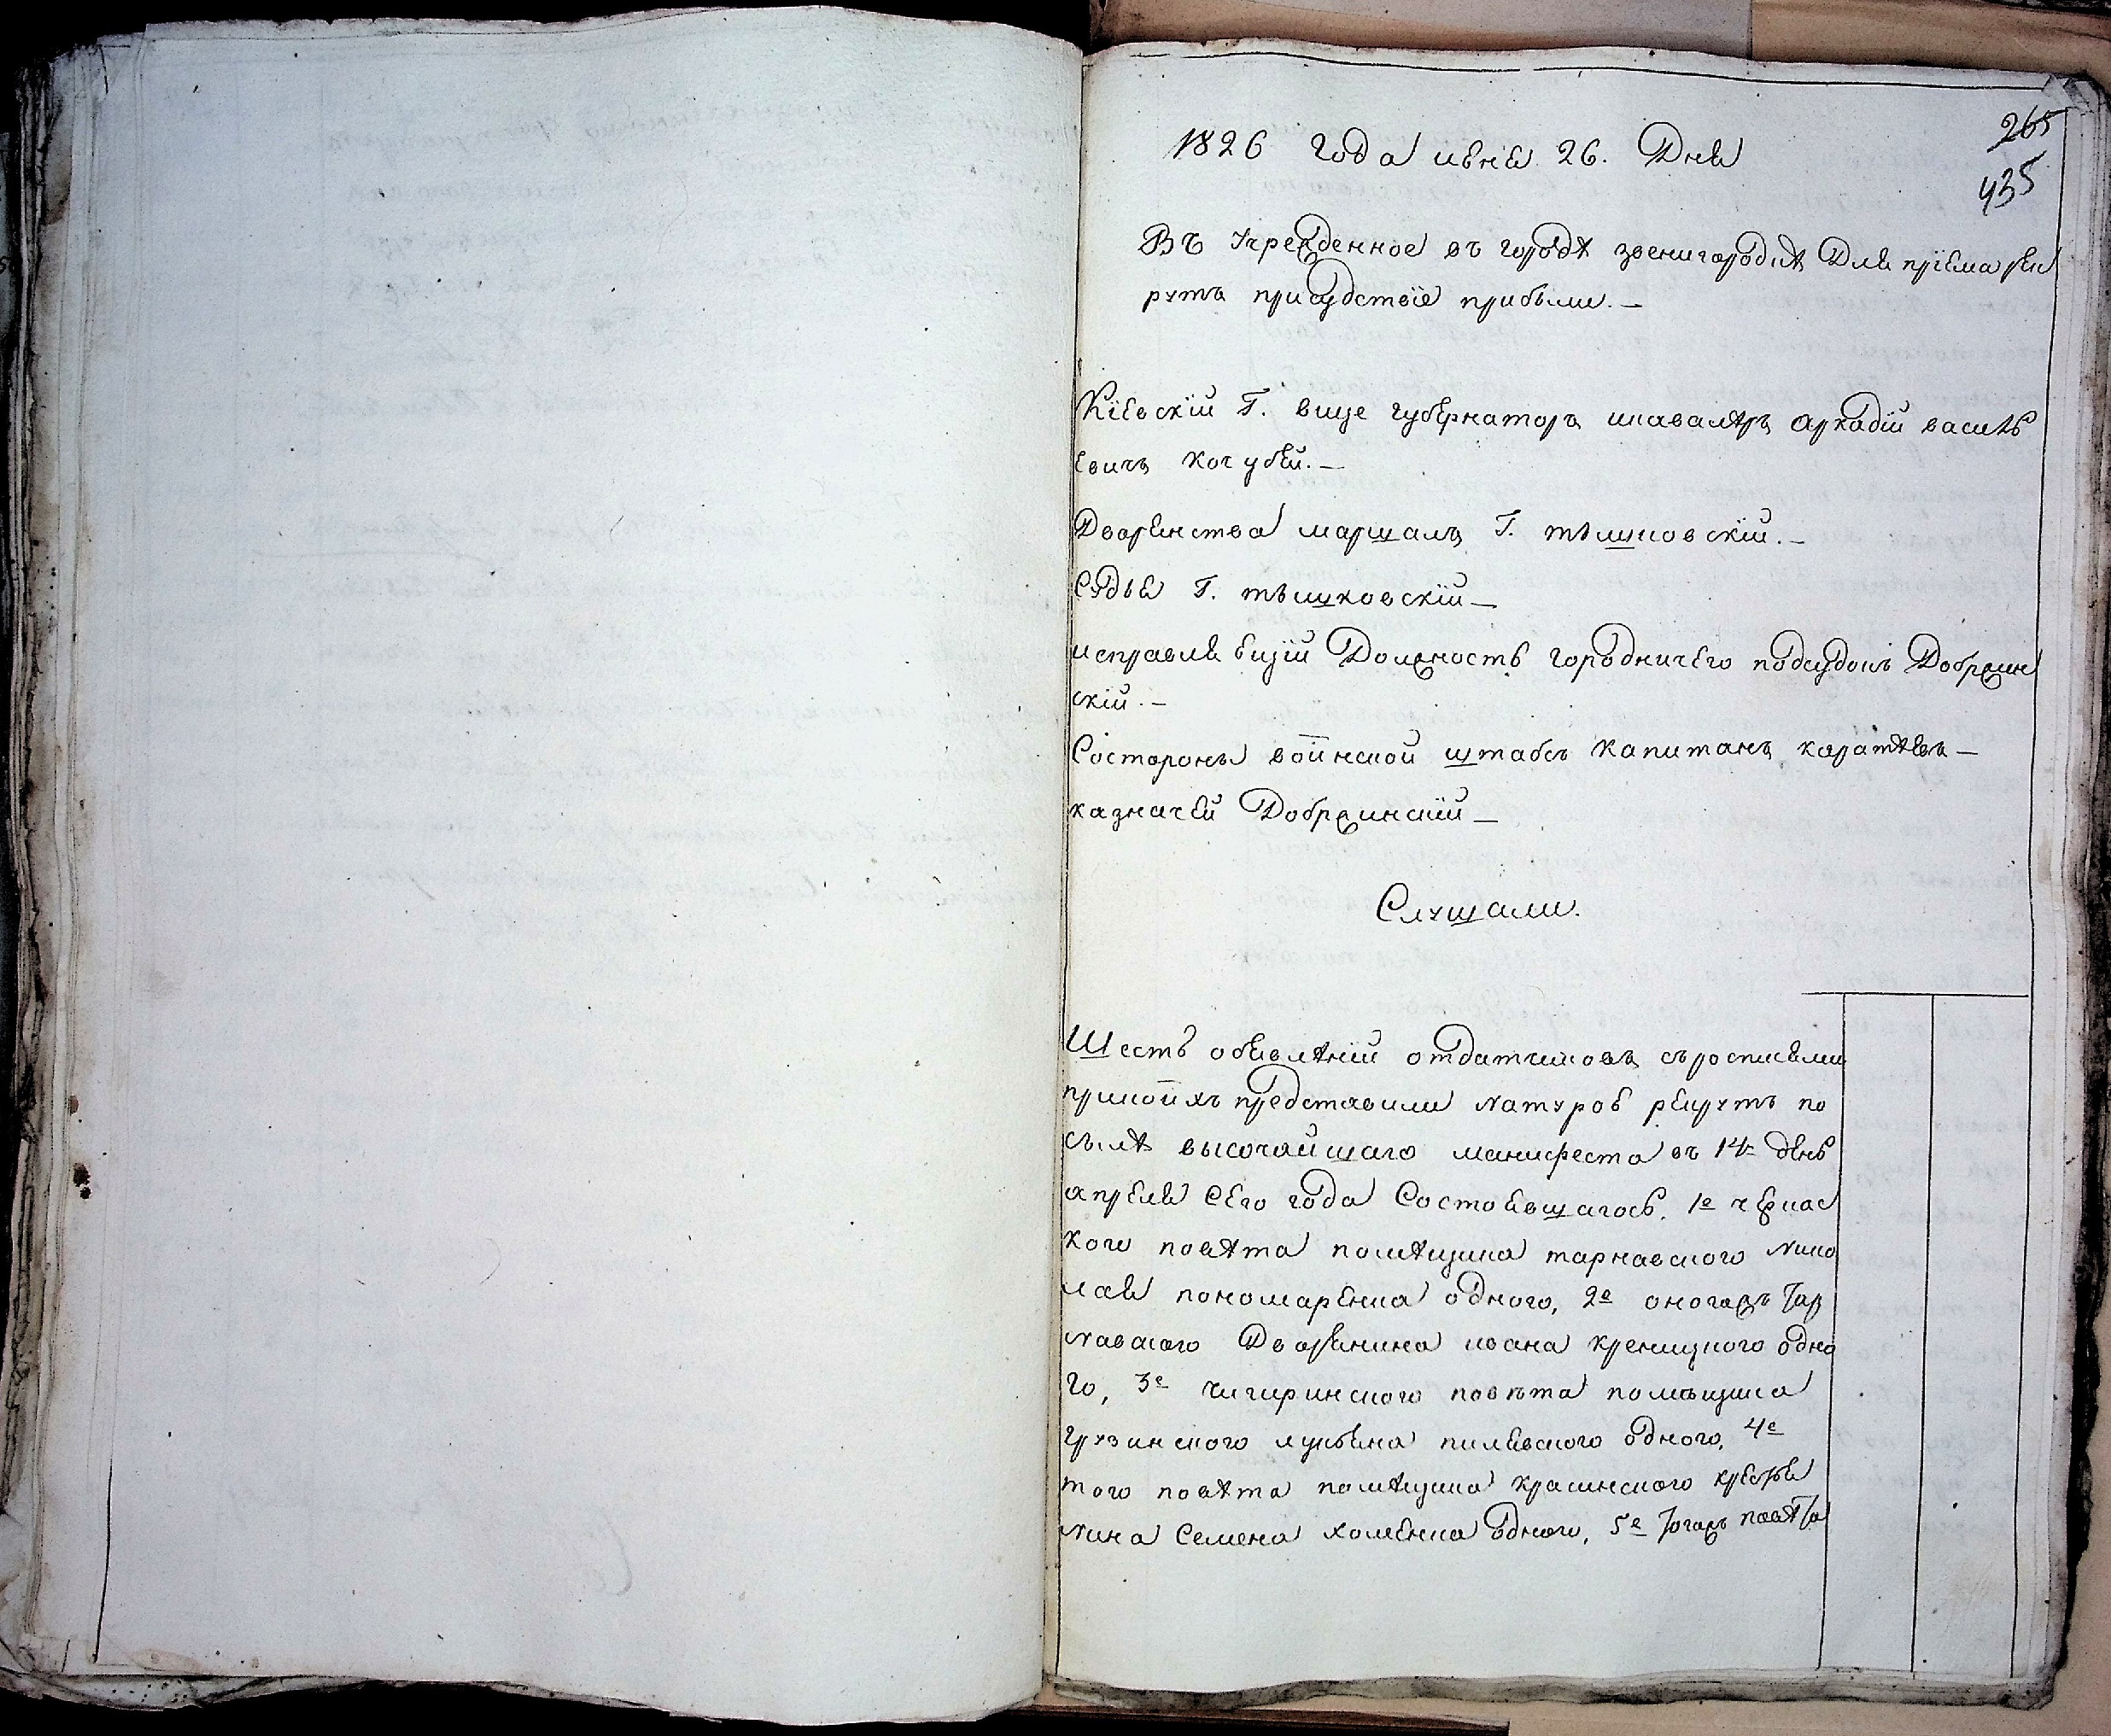 265
435
1826 года июня 26. Дня
Въ Учрежденное въ городѣ звенигородкѣ Для прїема рек
рутъ присудствїе прибыли. —
Кїевскїй Г. вице губернаторъ икавалѣръ Аркадїй василь
евичъ кочубей. —
Дворянства маршалъ Г. тышковскїй. —
Судья Г. тышковскїй —
исправляющїй Должность городничего подсудокъ Добржин
скїй. —
Состороны воинской штабсъ капитанъ каратѣевъ —
казначей Добржинскїй —
Слушали.
Шесть объявлѣнїй отдатчиковъ съросписями
прикоихъ представили натурою рекрутъ по
сылѣ высочайшаго манифеста въ 14 день
апреля сего года Состоявшагось. 1е черкас
кого повѣта помѣщика тарнавского нико
лая пономаренка одного, 2е оногожъ Тар
навского Дворянина ивана креницкого одно
го, 3е чигиринского повѣта помѣщика
грузинского лукьяна пилявского одного, 4е
того повѣта помѣщика красинского крестья
нина Семена хоменка одного, 5е Тогожъ повѣта